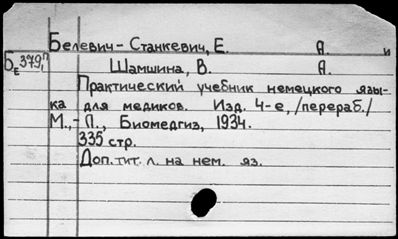 Белевич-Станкевич, Е. А. и
Бе379,п Шамшина, В. А.
Практический учебник немецкого язы-
ка для медиков. Изд. 4-е, /перераб./
М.,-Л., Биомедгиз, 1934.
335 стр.
Доп. тит. л. на нем. яз.